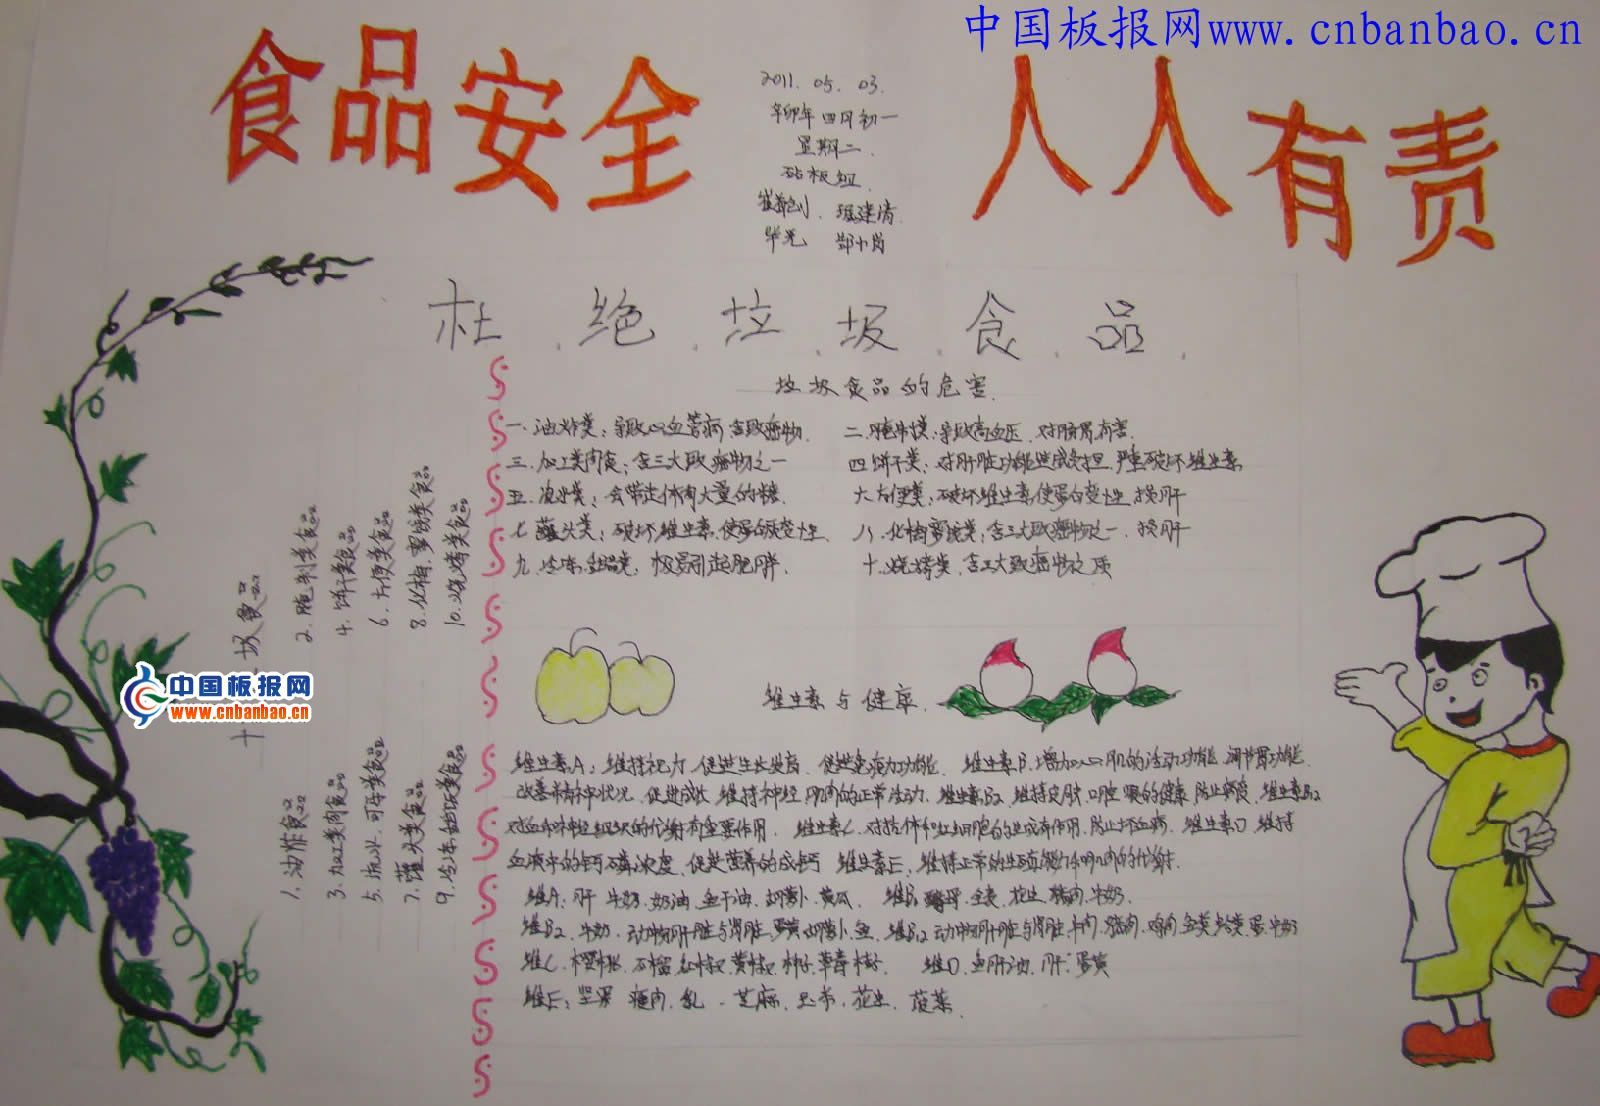 中国板报网www.cnbanbao.cn
食品安全
人人有责
2011. 05. 03.
辛卯年 四月 初一
星期二.
砧板组.
杜.绝.垃.圾.食.品.
垃圾食品的危害.
一. 油炸类: 导致心血管病 含致癌物. 二. 腌制类: 导致高血压. 对肠胃有害.
三. 加工类肉食: 含三大致癌物之一 四. 饼干类: 对肝脏功能造成负担. 严重破坏维生素
五. 汽水类: 会带走体内大量的糖. 六. 方便类: 破坏维生素 使蛋白变性. 损肝
七. 罐头类: 破坏维生素. 使蛋白质变性. 八. 化梅蜜饯类: 含三大致癌物之一. 损肝
九. 冷冻 极易引起肥胖. 十. 烧烤类. 含三大致癌物之
十 圾食品
1. 油炸食品 2. 腌制类食品
3. 加工类肉食品 4. 饼干类食品
5. 汽水. 可乐类食品 6. 方便类食品
7. 罐头类食品 8. 化梅. 蜜饯类食品
9. 冷冻甜类食品 10. 烧烤类食品
中国板报网
www.cnbanbao.cn
维生素与健康.
维生素A: 维持视力. 促进生长发育. 促进免疫力功能. 维生素B. 增加心肌的活动功能. 调节胃功能.
改善精神状况. 促进成长 维持神经 肌肉的正常活动. 维生素B2 维持皮肤. 口腔 眼的健康 防止 维生素B12
对血和神经组织的代谢有重要作用. 维生素C. 对抗体和红细胞的生成有作用. 防止坏血病. 维生素D 维持
血液中的钙磷浓度. 促进营养的成 维生素E. 维持正常的生殖能力和肌肉的代谢.
维A: 肝 牛奶. 奶油. 鱼干油. 胡萝卜. 黄瓜. 维B: 全麦. 花生. 猪肉. 牛奶.
维B2. 牛奶. 动物肝脏与肾脏. 蛋黄. 胡萝卜. 鱼. 维B12 动物肝脏与肾脏. 牛肉. 猪肉. 鸡肉 鱼类 蛋. 牛奶
维C. 樱桃. 石榴. 红椒. 黄椒. 柿子. 草莓 维D. 鱼肝油. 肝. 蛋黄
维E: 坚果 瘦肉. 乳. 芝麻. 玉米. 花生. 菠菜.